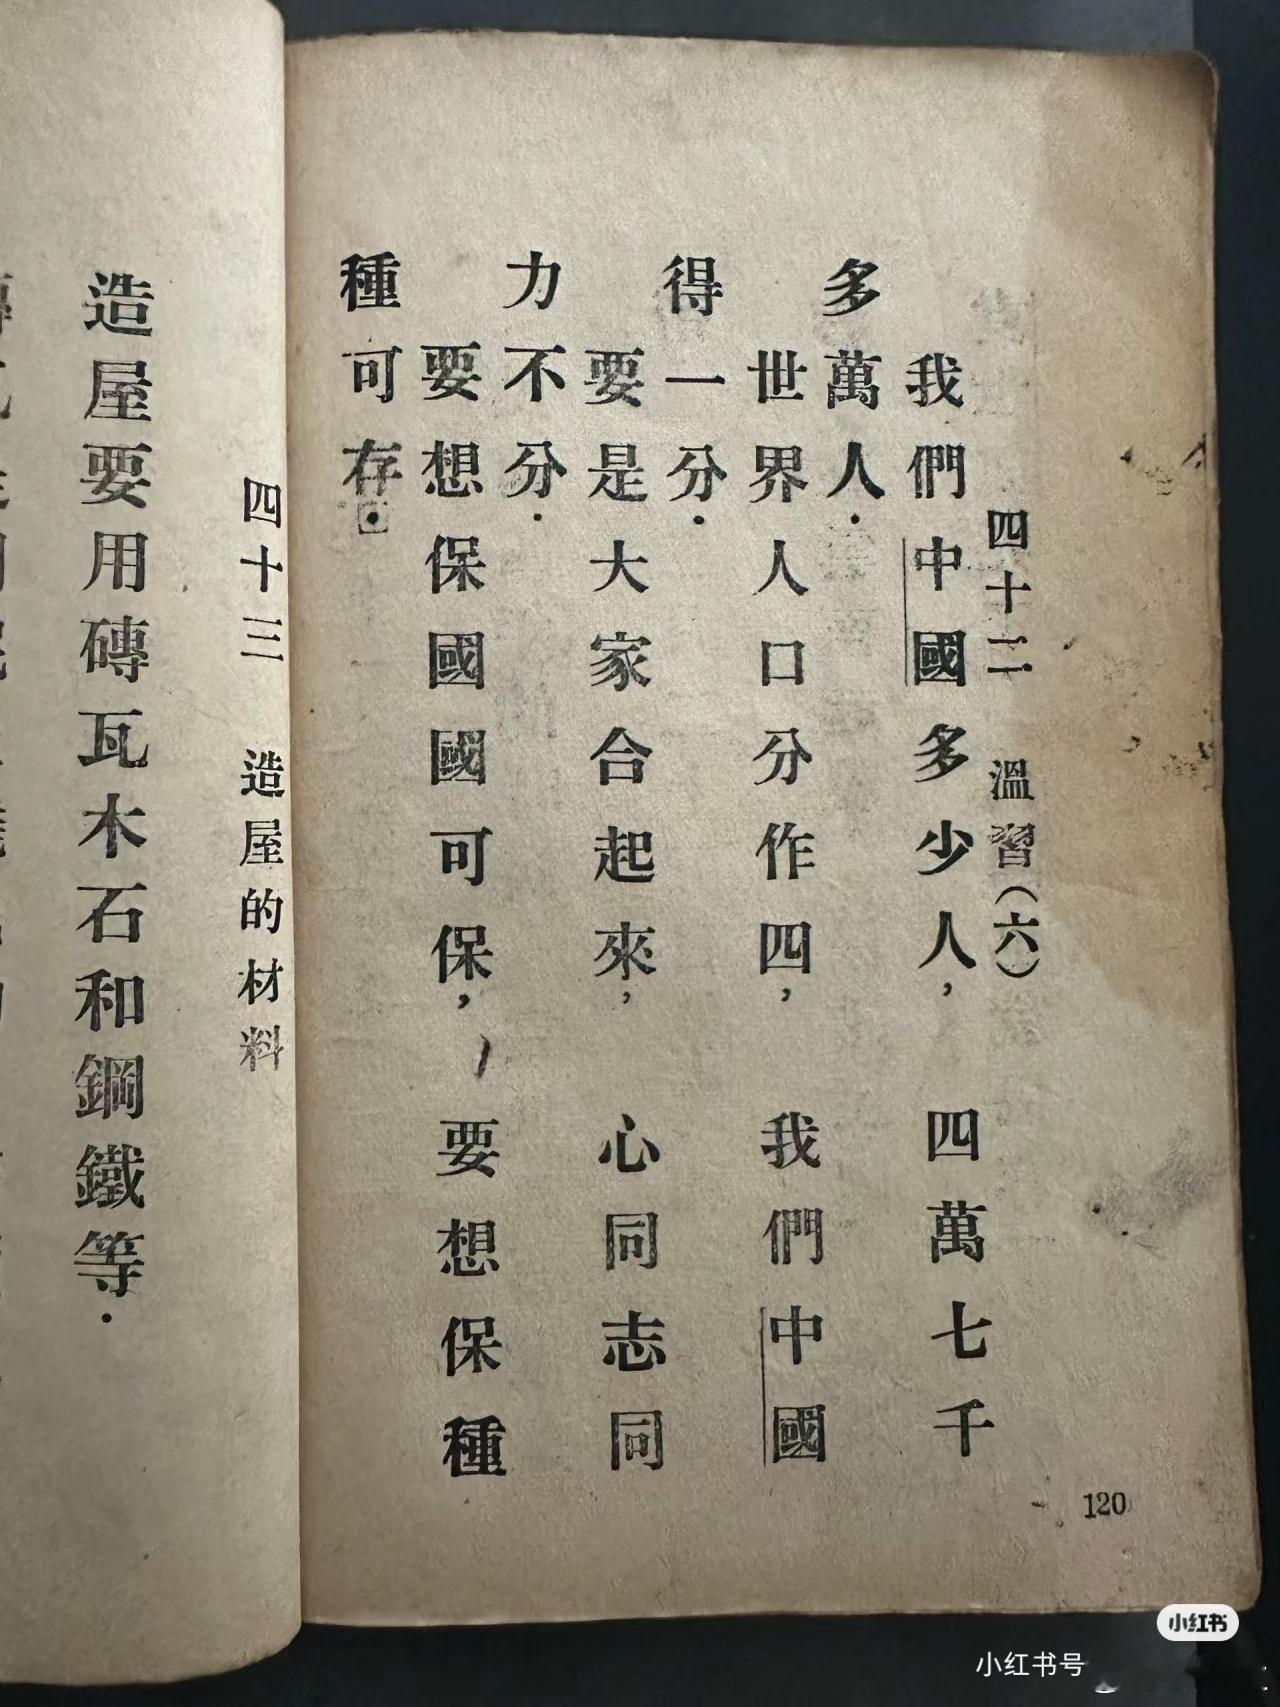 四十二　溫習（六）
我們中國多少人，　四萬七千
多萬人．
世界人口分作四，　我們中國
得一分．
要是大家合起來，　心同志同
力不分．
要想保國國可保，　要想保種
種可存．
120
四十三　造屋的材料
造屋要用磚瓦木石和鋼鐵等．
小红书
小红书号